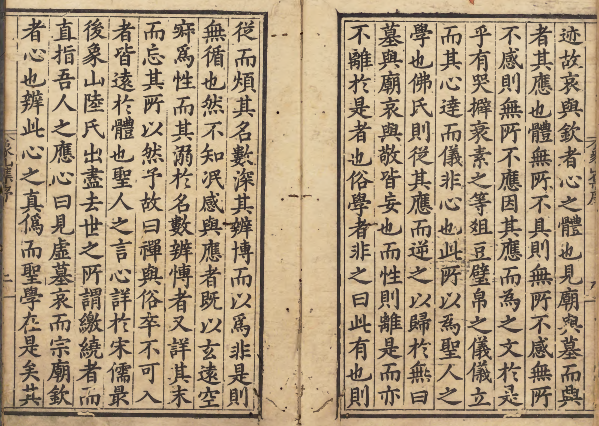 迹故哀與欽者心之體也見廟與墓而興
者其應也體無所不具則無所不感無所
不感則無所不應因其應而為之文於是
乎有哭擗衰素之等俎豆璧帛之儀儀立
而其心達而儀非心也此所以為聖人之
學也佛氏則從其應而逆之以歸於無曰
墓與廟哀與敬皆妄也而性則離是而亦
不離於是者也俗學者非之曰此有也則
從而煩其名數深其辨博而以為非是則
無循也然不知泯感與應者既以玄遠空
寂為性而其溺於名數辨博者又詳其末
而忘其所以然予故曰禪與俗卒不可入
者皆遠於體也聖人之言心詳於宋儒最
後象山陸氏出盡去世之所謂繳繞者而
直指吾人之應心曰見虛墓哀而宗廟欽
者心也辨此心之真偽而聖學在是矣其